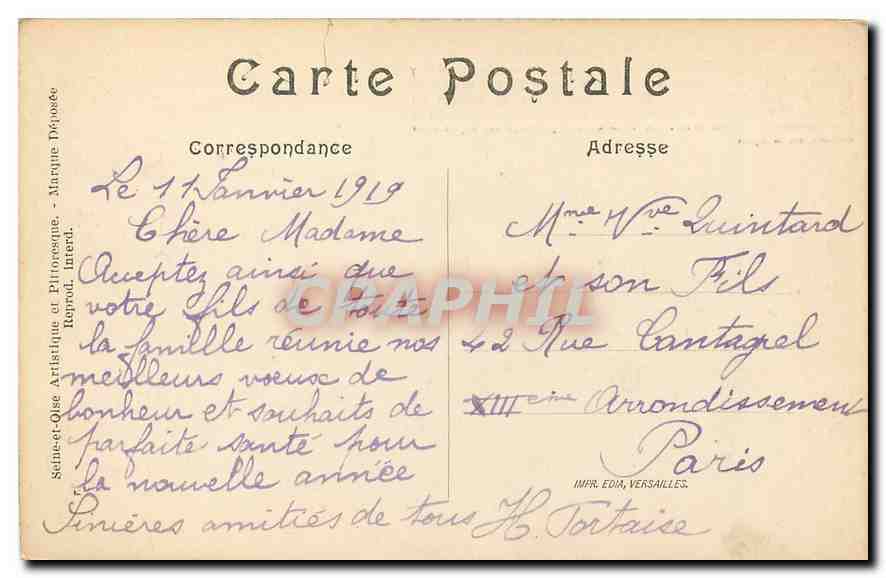 Carte Postale
Correspondance
Adresse
Seine-et-Oise Artistique et Pittoresque. - Marque Déposée
Reprod. interd.
Le 11 Janvier 1919
Chère Madame
Acceptez ainsi que
votre fils de toute
la famille réunie nos
meilleurs voeux de
bonheur et souhaits de
parfaite santé pour
la nouvelle année
Sinières amitiés de tous H. Tortaise
Mme Vve Quintard
et son Fils
42 Rue Cantagrel
XIIIeme Arrondissement
Paris
IMPR. EDIA, VERSAILLES.
CPAPHIL